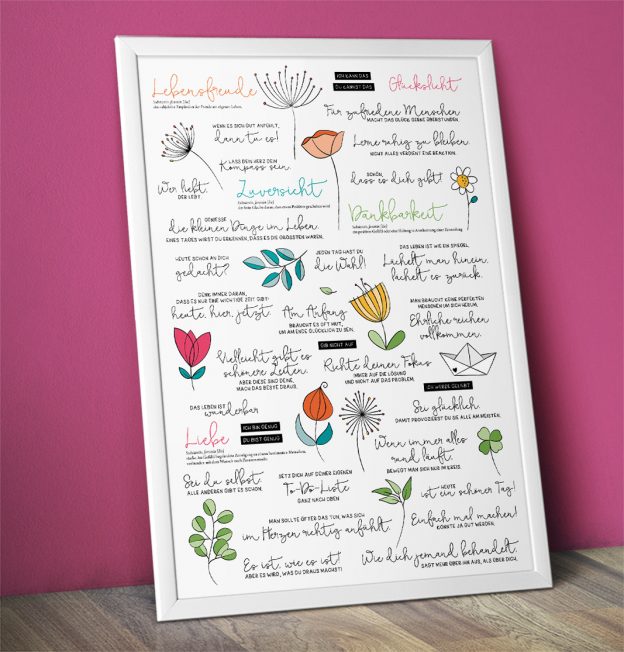 Lebensfreude
ICH KANN DAS
DU KANNST DAS
Glückslicht
Für zufriedene Menschen
MACHT DAS GLÜCK GERNE ÜBERSTUNDEN.
WENN ES SICH GUT ANFÜHLT,
dann tu es!
Lerne ruhig zu bleiben.
NICHT ALLES VERDIENT EINE REAKTION.
LASS DEIN HERZ DEIN
Kompass sein.
Wer liebt,
DER LEBT.
SCHÖN,
dass es dich gibt!
Zuversicht
Dankbarkeit
GENIESSE
die kleinen Dinge im Leben.
EINES TAGES WIRST DU ERKENNEN, DASS ES DIE GRÖSSTEN WAREN.
HEUTE SCHON AN DICH
gedacht?
JEDEN TAG HAST DU
die Wahl!
DAS LEBEN IST WIE EIN SPIEGEL.
Lächelt man hinein,
lächelt es zurück.
DENK IMMER DARAN,
DASS ES NUR EINE WICHTIGE ZEIT GIBT:
heute, hier, jetzt.
Am Anfang
BRAUCHT ES OFT MUT,
UM AM ENDE GLÜCKLICH ZU SEIN.
MAN BRAUCHT KEINE PERFEKTEN
MENSCHEN UM SICH HERUM,
Ehrliche reichen
vollkommen.
GIB NICHT AUF
Vielleicht gibt es
schönere Zeiten,
ABER DIESE SIND DEINE,
MACH DAS BESTE DRAUS.
Richte deinen Fokus
IMMER AUF DIE LÖSUNG
UND NICHT AUF DAS PROBLEM.
ICH WERDE GELIEBT
DAS LEBEN IST
wunderbar
Sei glücklich,
DAMIT PROVOZIERST DU SIE ALLE AM MEISTEN.
Liebe
ICH BIN GENUG
DU BIST GENUG
Wenn immer alles
rund läuft,
BEWEGT MAN SICH NUR IM KREIS.
Sei du selbst.
ALLE ANDEREN GIBT ES SCHON.
SETZ DICH AUF DEINER EIGENEN
To-Do-Liste
GANZ NACH OBEN
HEUTE
ist ein schöner Tag!
MAN SOLLTE ÖFTER DAS TUN, WAS SICH
im Herzen richtig anfühlt.
Einfach mal machen!
KÖNNTE JA GUT WERDEN.
Es ist, wie es ist!
ABER ES WIRD, WAS DU DRAUS MACHST!
Wie dich jemand behandelt,
SAGT MEHR ÜBER IHN AUS, ALS ÜBER DICH.